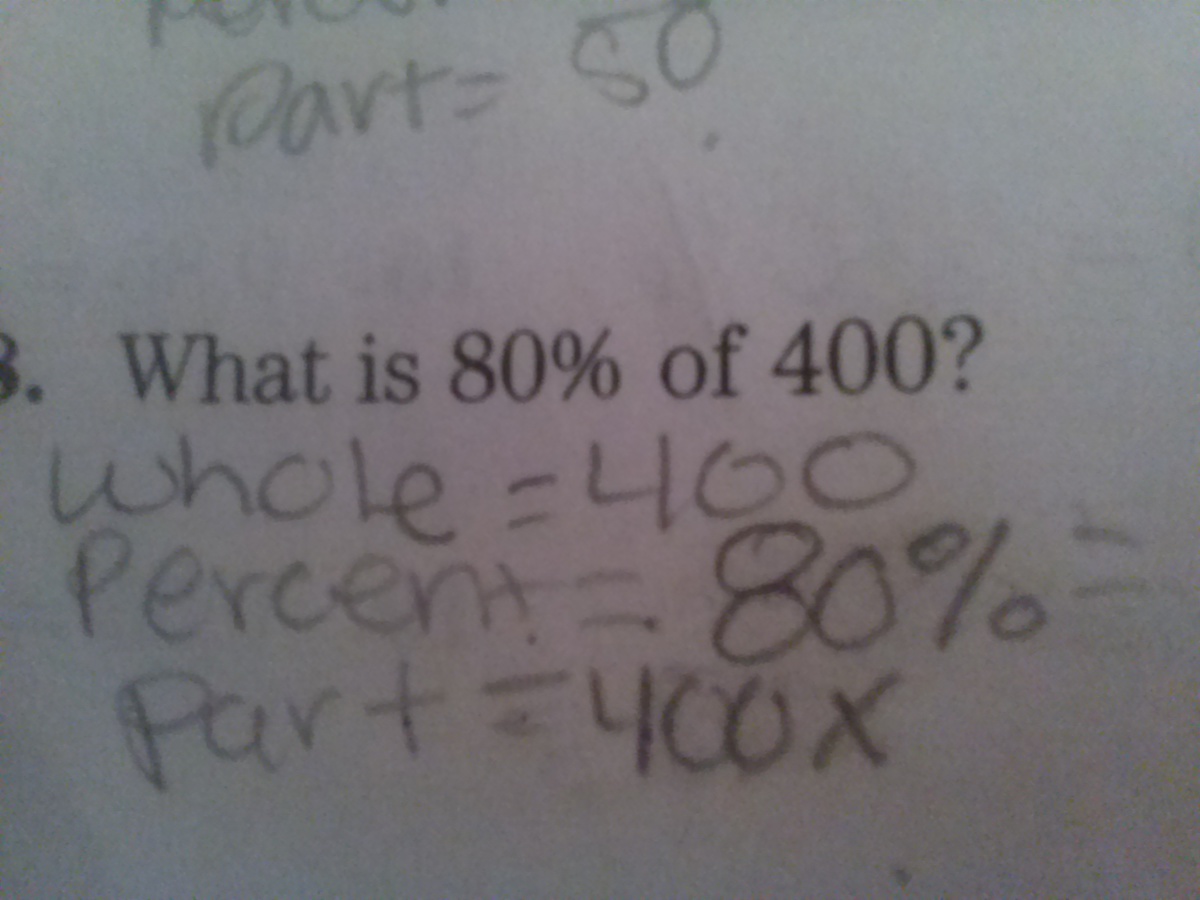 Part = 50
3. What is 80% of 400?
Whole = 400
Percent = 80% =
Part = 400 x